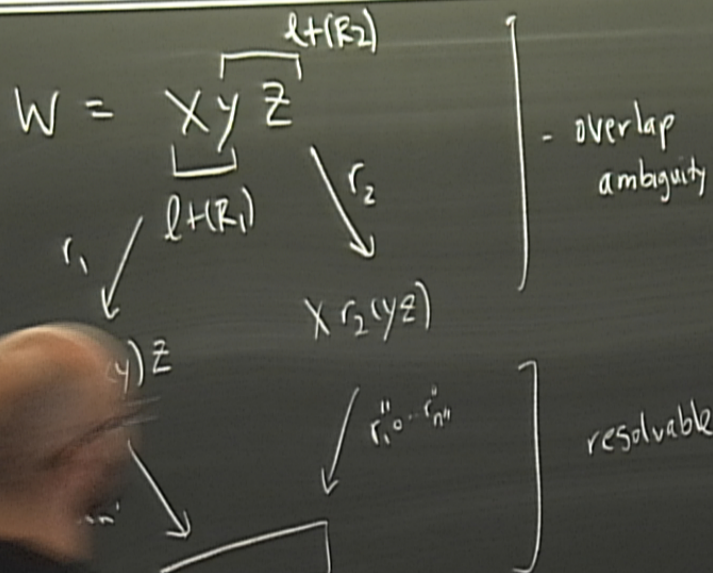 lt(R2)
W = X y Z
- overlap
ambiguity
lt(R₁)
r₂
r₁
X r₂(yz)
y) Z
r₁'' ∘ ... r''ₙ''
resolvable